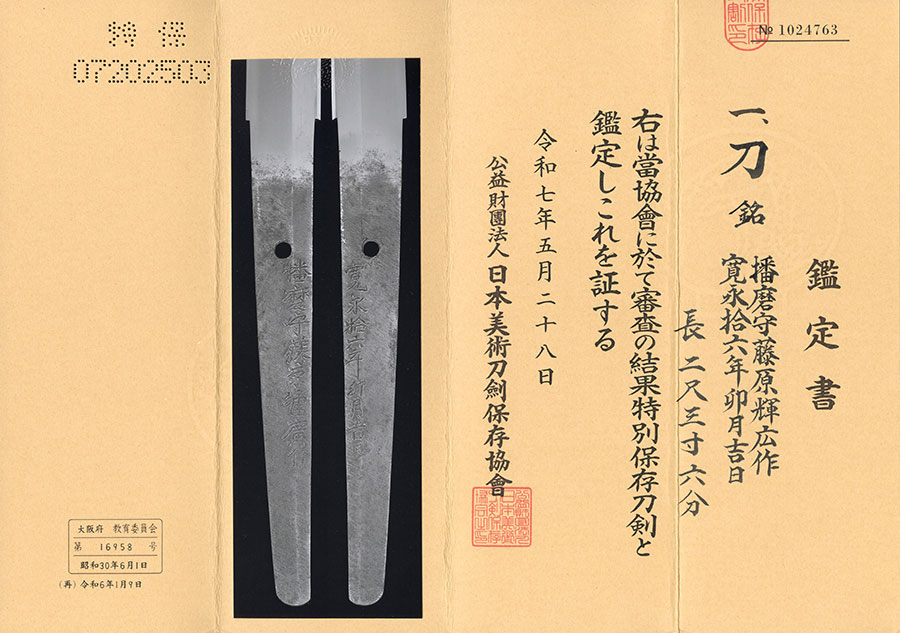 № 1024763
鑑定書
一、刀 銘 播磨守藤原輝広作
寛永拾六年卯月吉日
長二尺三寸六分
右は當協會に於て審査の結果特別保存刀剣と
鑑定しこれを証する
令和七年五月二十八日
公益財團法人日本美術刀劍保存協會
寛永拾六年卯月吉日
播磨守藤原輝廣作
特保
07202503
大阪府 教育委員会
第 16958 号
昭和30年6月1日
(再) 令和6年1月9日